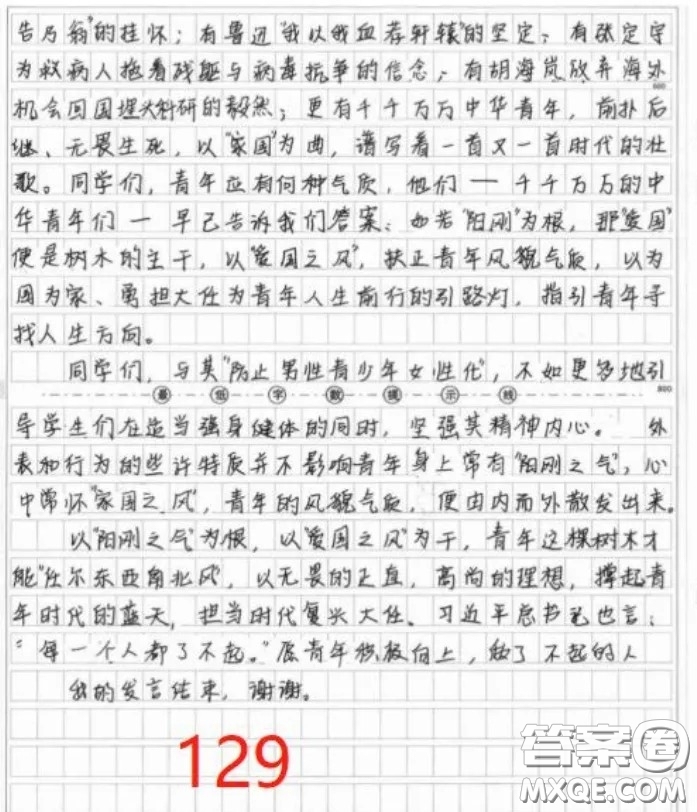 告乃翁"的挂怀；有鲁迅"我以我血荐轩辕"的坚定；有张定宇
为救病人拖着残躯与病毒抗争的信念；有胡海岚放弃海外
600
机会回国埋头科研的毅然；更有千千万万中华青年，前扑后
继、无畏生死，以"家国"为曲，谱写着一首又一首时代的壮
歌。同学们，青年应有何种气质，他们——千千万万的中
华青年们——早已告诉我们答案：如若"阳刚"为根，那"爱国"
便是树木的主干，以"爱国之风"，扶正青年风貌气质，以为
国为家、勇担大任为青年人生前行的引路灯，指引青年寻
找人生方向。
同学们，与其"防止男性青少年女性化"，不如更多地引
最低字数提示线 800
导学生们在适当强身健体的同时，坚强其精神内心。 外
表和行为的些许特质并不影响青年身上常有"阳刚之气"，心
中常怀"家国之风"，青年的风貌气质，便由内而外散发出来。
以"阳刚之气"为根，以"爱国之风"为干，青年这棵树木才
能"任尔东西南北风"，以无畏的正直，高尚的理想，撑起青
年时代的蓝天，担当时代复兴大任。习近平总书记也言：
"每一个人都了不起。"愿青年积极向上，做了不起的人
我的发言结束，谢谢。
129
答案圈
MXQE.COM